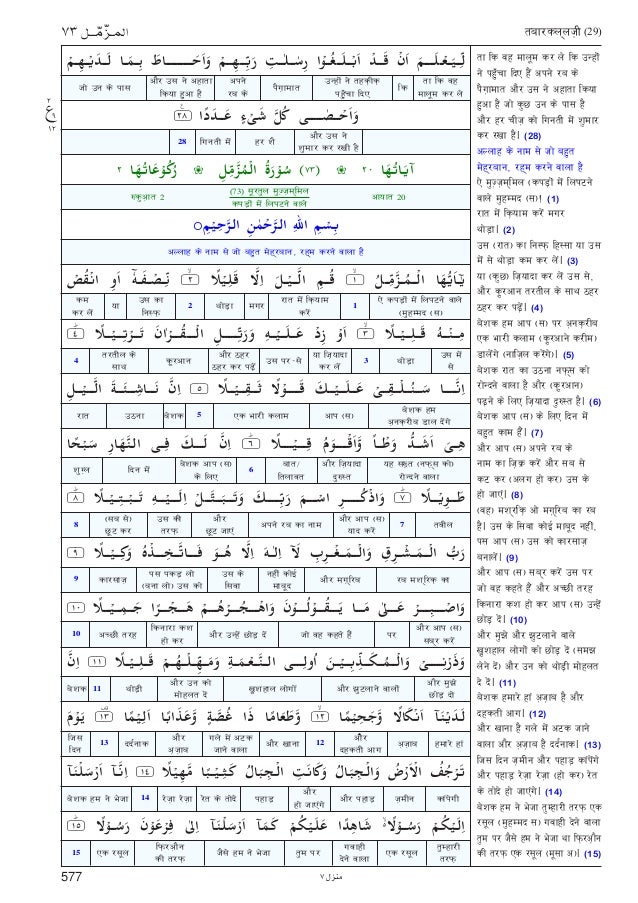 المزّمّل ٧٣
तबारकल्लज़ी (29)
لِّيَعْلَمَ اَنْ قَدْ اَبْلَغُوْا رِسٰلٰتِ رَبِّهِمْ وَاَحَاطَ بِمَا لَدَيْهِمْ
जो उन के पास | और उस ने अहाता किया हुआ है | अपने रब के | पैग़ामात | उन्हों ने तहकीक़ पहुँचा दिए | कि | ता कि वह मालूम कर लें
وَاَحْصٰى كُلَّ شَيْءٍ عَدَدًا ٢٨
28 | गिनती में | हर शै | और उस ने शुमार कर रखी है
٢
ع
٩
١٢
اٰيَاتُهَا ٢٠ ❀ (٧٣) سُوْرَةُ الْمُزَّمِّلِ ❀ رُكُوْعَاتُهَا ٢
रुकुआ़त 2 | (73) सूरतुल मुज़्ज़म्मिल | आयात 20
कपड़ों में लिपटने वाले
بِسْمِ اللّٰهِ الرَّحْمٰنِ الرَّحِيْمِ
अल्लाह के नाम से जो बहुत मेह्रबान, रह्म करने वाला है
يٰٓاَيُّهَا الْمُزَّمِّلُ ١ قُمِ الَّيْلَ اِلَّا قَلِيْلًا ٢ نِّصْفَهٗٓ اَوِ انْقُصْ
कम कर लें | या | उस का निस्फ़ | 2 | थोड़ा | मगर | रात में क़ियाम करें | 1 | ऐ कपड़ों में लिपटने वाले (मुहम्मद (स)
مِنْهُ قَلِيْلًا ٣ اَوْ زِدْ عَلَيْهِ وَرَتِّلِ الْقُرْاٰنَ تَرْتِيْلًا ٤
4 | तरतील के साथ | कुरआन | और ठहर ठहर कर पढ़ें | उस पर -से | या ज़ियादा कर लें | 3 | थोड़ा | उस में से
اِنَّا سَنُلْقِيْ عَلَيْكَ قَوْلًا ثَقِيْلًا ٥ اِنَّ نَاشِئَةَ الَّيْلِ
रात | उठना | बेशक | 5 | एक भारी कलाम | आप (स) | बेशक हम अ़नक़रीब डाल देंगे
هِيَ اَشَدُّ وَطْاً وَّاَقْوَمُ قِيْلًا ٦ اِنَّ لَكَ فِي النَّهَارِ سَبْحًا
शुग्ल | दिन में | बेशक आप (स) के लिए | 6 | बात/ तिलावत | और ज़ियादा दुरुस्त | यह सख़्त (नफ़्स को) रोन्दने वाला
طَوِيْلًا ٧ وَاذْكُرِ اسْمَ رَبِّكَ وَتَبَتَّلْ اِلَيْهِ تَبْتِيْلًا ٨
8 | (सब से) छूट कर | उस की तरफ़ | और छूट जाएं | अपने रब का नाम | और आप (स) याद करें | 7 | तवील
رَبُّ الْمَشْرِقِ وَالْمَغْرِبِ لَآ اِلٰهَ اِلَّا هُوَ فَاتَّخِذْهُ وَكِيْلًا ٩
9 | कारसाज़ | पस पकड़ लो (बना लो) उस को | उस के सिवा | नहीं कोई माबूद | और मग़्रिब | रब मश्रिक़ का
وَاصْبِرْ عَلٰى مَا يَقُوْلُوْنَ وَاهْجُرْهُمْ هَجْرًا جَمِيْلًا ١٠
10 | अच्छी तरह | किनारा कश हो कर | और उन्हें छोड़ दें | जो वह कहते हैं | पर | और आप (स) सब्र करें
وَذَرْنِيْ وَالْمُكَذِّبِيْنَ اُولِي النَّعْمَةِ وَمَهِّلْهُمْ قَلِيْلًا ١١ اِنَّ
बेशक | 11 | थोड़ी | और उन को मोहलत दें | खुशहाल लोगों | और झुटलाने वालों | और मुझे छोड़ दो
لَدَيْنَآ اَنْكَالًا وَّجَحِيْمًا ١٢ وَّطَعَامًا ذَا غُصَّةٍ وَّعَذَابًا اَلِيْمًا ١٣ يَوْمَ
जिस दिन | 13 | दर्दनाक | और अ़ज़ाब | गले में अटक जाने वाला | और खाना | 12 | और दहकती आग | अ़ज़ाब | हमारे हां
تَرْجُفُ الْاَرْضُ وَالْجِبَالُ وَكَانَتِ الْجِبَالُ كَثِيْبًا مَّهِيْلًا ١٤ اِنَّآ اَرْسَلْنَآ
बेशक हम ने भेजा | 14 | रेज़ा रेज़ा | रेत के तोदे | पहाड़ | और हो जाएंगे | और पहाड़ | ज़मीन | कांपेगी
اِلَيْكُمْ رَسُوْلًا شَاهِدًا عَلَيْكُمْ كَمَآ اَرْسَلْنَآ اِلٰى فِرْعَوْنَ رَسُوْلًا ١٥
15 | एक रसूल | फ़िरऔ़न की तरफ़ | जैसे हम ने भेजा | तुम पर | गवाही देने वाला | एक रसूल | तुम्हारी तरफ़
ता कि वह मालूम कर ले कि उन्हों
ने पहुँचा दिए हैं अपने रब के
पैग़ामात और उस ने अहाता किया
हुआ है जो कुछ उन के पास है
और हर चीज़ को गिनती में शुमार
कर रखा है। (28)
अल्लाह के नाम से जो बहुत
मेह्रबान, रह्म करने वाला है
ऐ मुज़्ज़म्मिल (कपड़ों में लिपटने
वाले मुहम्मद (स)! (1)
रात में क़ियाम करें मगर
थोड़ा। (2)
उस (रात) का निस्फ़ हिस्सा या उस
में से थोड़ा कम कर लें। (3)
या (कुछ) ज़ियादा कर लें उस से,
और कुरआन तरतील के साथ ठहर
ठहर कर पढ़ें। (4)
बेशक हम आप (स) पर अ़नक़रीब
एक भारी कलाम (कुरआन करीम)
डालेंगे (नाज़िल करेंगे)। (5)
बेशक रात का उठना नफ़्स को
रोन्दने वाला है और (कुरआन)
पढ़ने के लिए ज़ियादा दुरुस्त है। (6)
बेशक आप (स) के लिए दिन में
बहुत काम हैं। (7)
और आप (स) अपने रब के
नाम का ज़िक्र करें और सब से
कट कर (अलग हो कर) उस के
हो जाएं। (8)
(वह) मश्रिक़ ओ मग़्रिब का रब
है। उस के सिवा कोई माबूद नहीं,
पस आप (स) उस को कारसाज़
बनालें। (9)
और आप (स) सब्र करें उस पर
जो वह कहते हैं और अच्छी तरह
किनारा कश हो कर आप (स) उन्हें
छोड़ दें। (10)
और मुझे और झुटलाने वाले
खुशहाल लोगों को छोड़ दें (समझ
लेने दें) और उन को थोड़ी मोहलत
दे दें। (11)
बेशक हमारे हां अ़ज़ाब है और
दहकती आग। (12)
और खाना है गले में अटक जाने
वाला और अ़ज़ाब है दर्दनाक। (13)
जिस दिन ज़मीन और पहाड़ कांपेंगे
और पहाड़ रेज़ा रेज़ा (हो कर) रेत
के तोदे हो जाएंगे। (14)
बेशक हम ने भेजा तुम्हारी तरफ़ एक
रसूल (मुहम्मद स) गवाही देने वाला
तुम पर जैसे हम ने भेजा था फ़िरऔ़न
की तरफ़ एक रसूल (मूसा अ)। (15)
577
منزل ٧